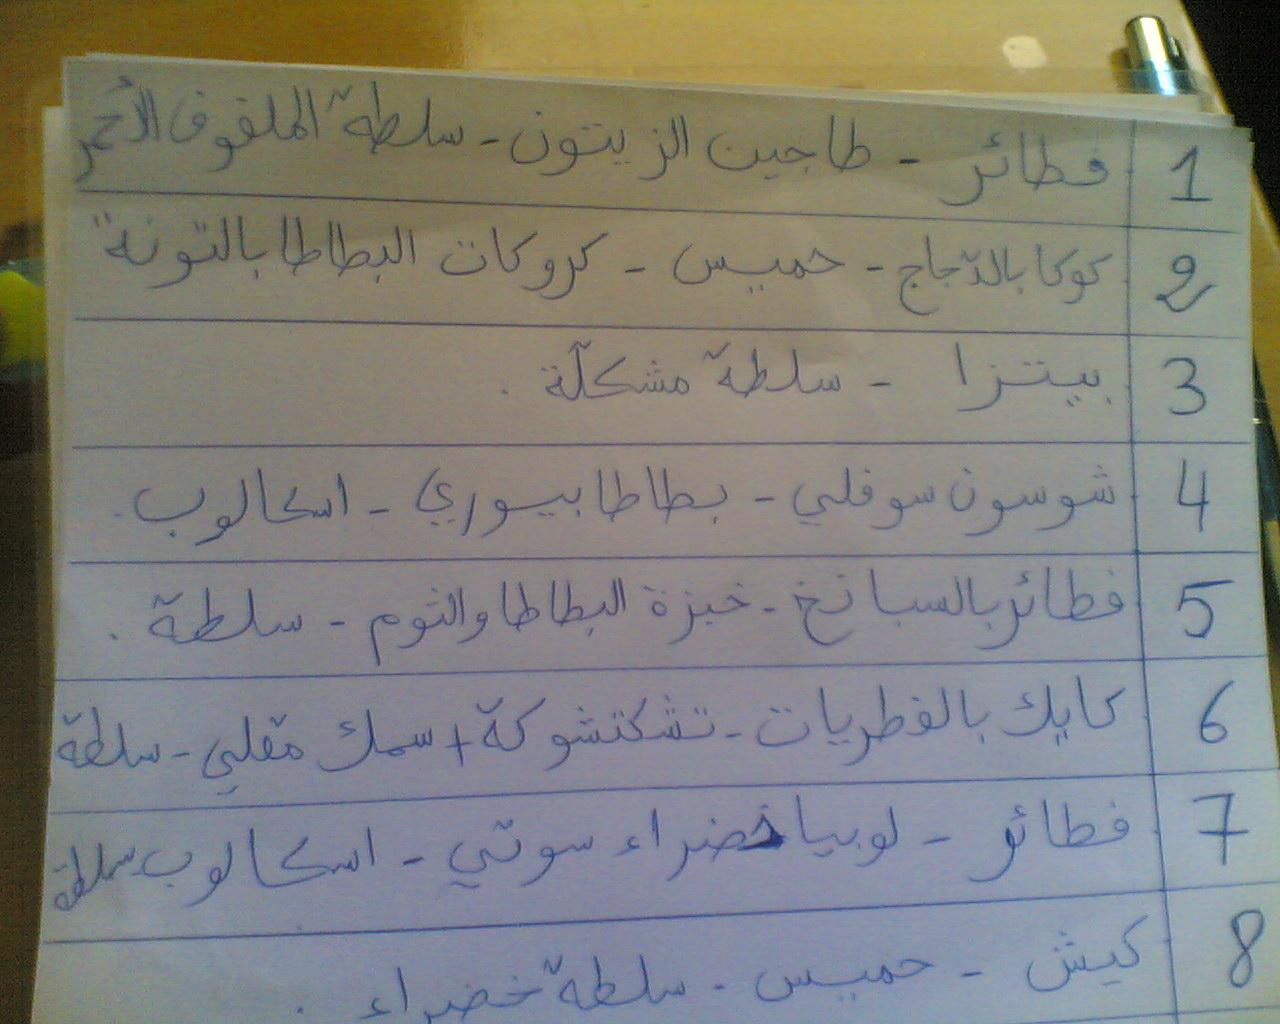 1 فطائر - طاجين الزيتون - سلطة الملفوف الأحمر
2 كوكا بالدّجاج - حميس - كروكات البطاطا بالتونة
3 بيتزا - سلطة مشكلّة .
4 شوسون سوفلي - بطاطا بيوري - اسكالوب .
5 فطائر بالسبانخ - خبزة البطاطا والثوم - سلطة .
6 كايك بالفطريات - تشكتشوكة + سمك مقلي - سلطة
7 فطائر - لوبيا خضراء سوتي - اسكالوب سلطة
8 كيش - حميس - سلطة خضراء .